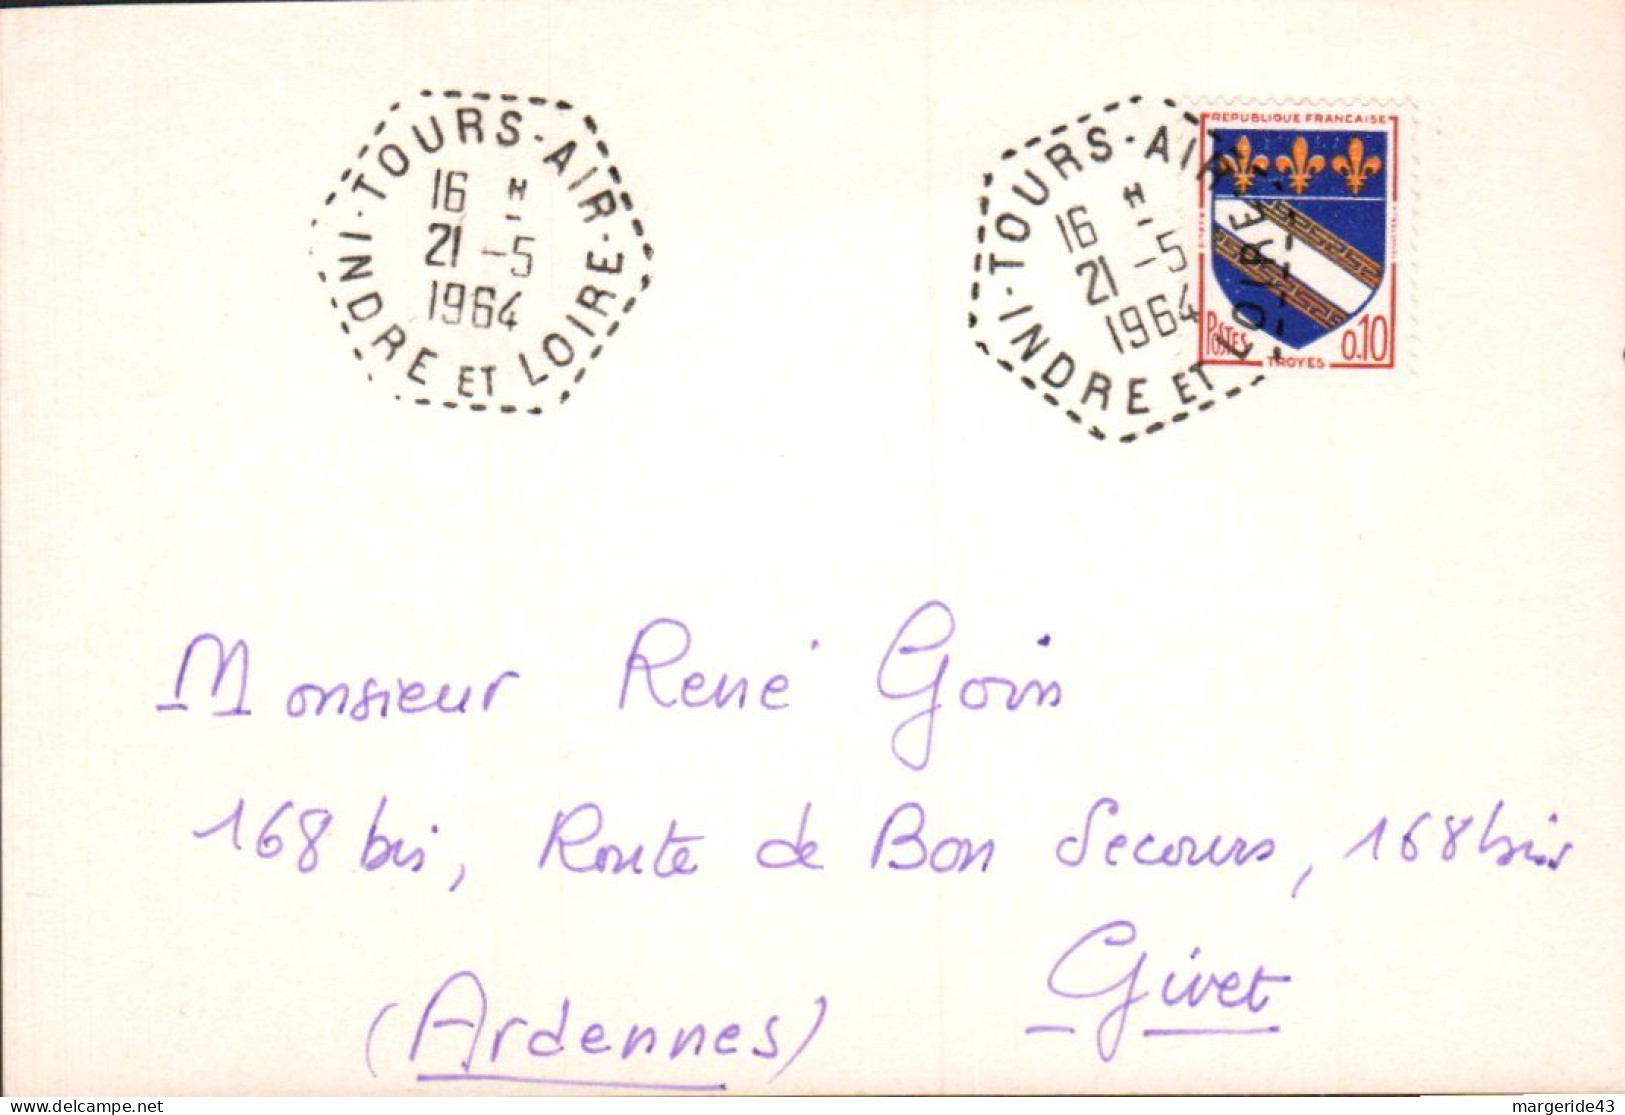 TOURS-AIR
16 H
21 -5
1964
INDRE ET LOIRE
TOURS-AIR
16 H
21 -5
1964
INDRE ET LOIRE
REPUBLIQUE FRANCAISE
POSTES
0.10
TROYES
Monsieur René Goin
168 bis, Route de Bon Secours, 168 bis
Givet
(Ardennes)
© delcampe.net
margeride43